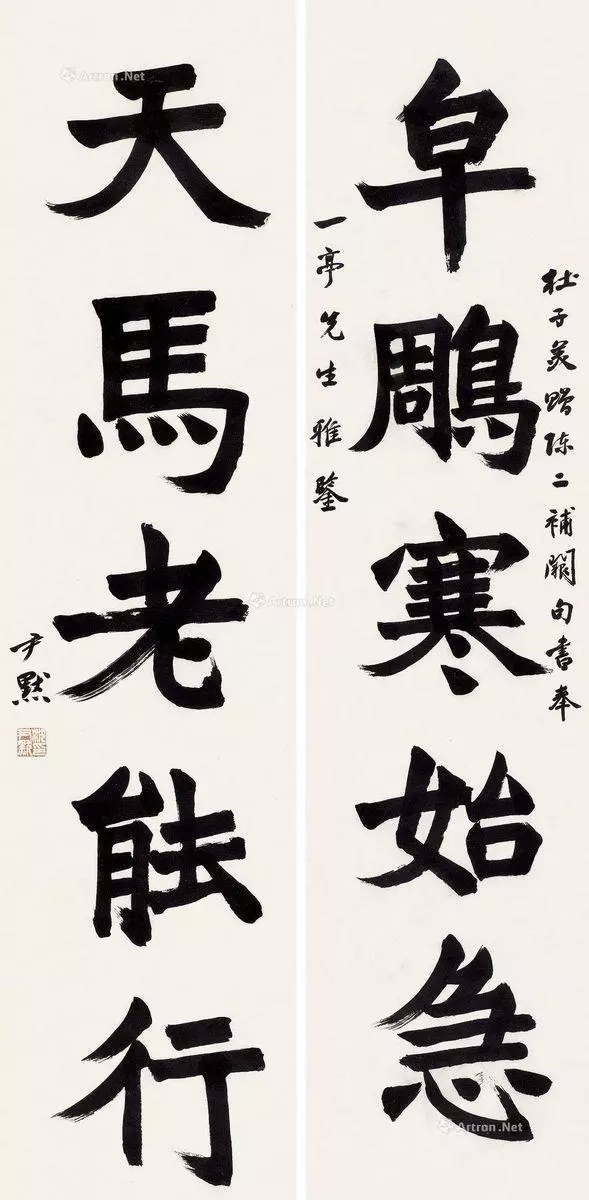 杜子美贈陈二補闕句書奉
皁鵰寒始急
一亭先生雅鑒
天馬老能行
尹默
Artron.Net
Artron.Net
Artron.Net